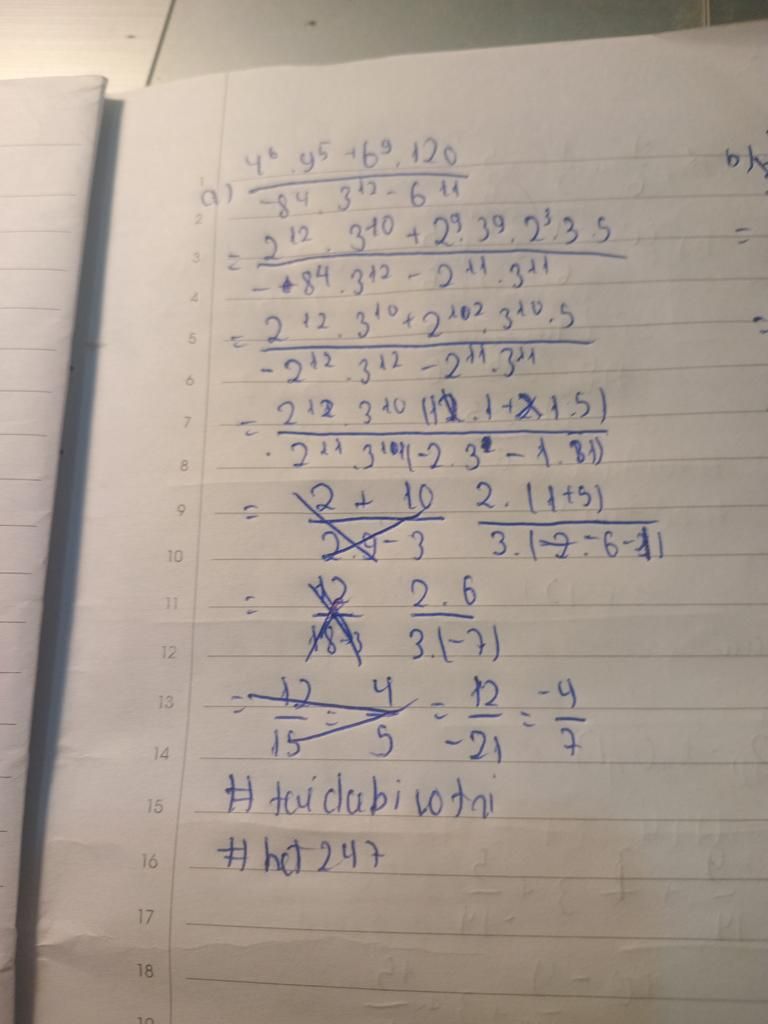 a) (4⁶ . 9⁵ + 6⁹ . 120) / (-8⁴ . 3¹² - 6¹¹)
= (2¹² . 3¹⁰ + 2⁹ . 3⁹ . 2³ . 3 . 5) / (-8⁴ . 3¹² - 2¹¹ . 3¹¹)
= (2¹² . 3¹⁰ + 2¹² . 3¹⁰ . 5) / (-2¹² . 3¹² - 2¹¹ . 3¹¹)
= 2¹² . 3¹⁰ (1 . 1 + 1 . 5) /
= 2 + 10 / 2 . 9 - 3 2 . (1 + 5) /
= 12 / 18 - 3 2 . 6 / 3 . (-7)
= 12 / 15 = 4 / 5 = 12 / -21 = -4 / 7
#
# hct 247
1
2
3
4
5
6
7
8
9
10
11
12
13
14
15
16
17
18
19
b)
=
=